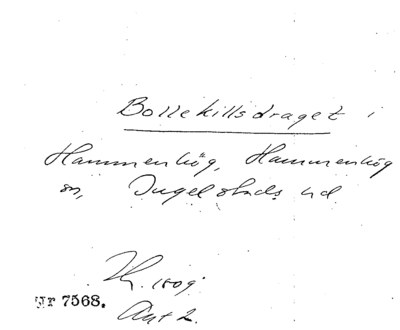 Bollekillsdraget i
Hammenhög, Hammenhög
sn, Ingelstads hd
1809
Nr 7568.
Akt 2.